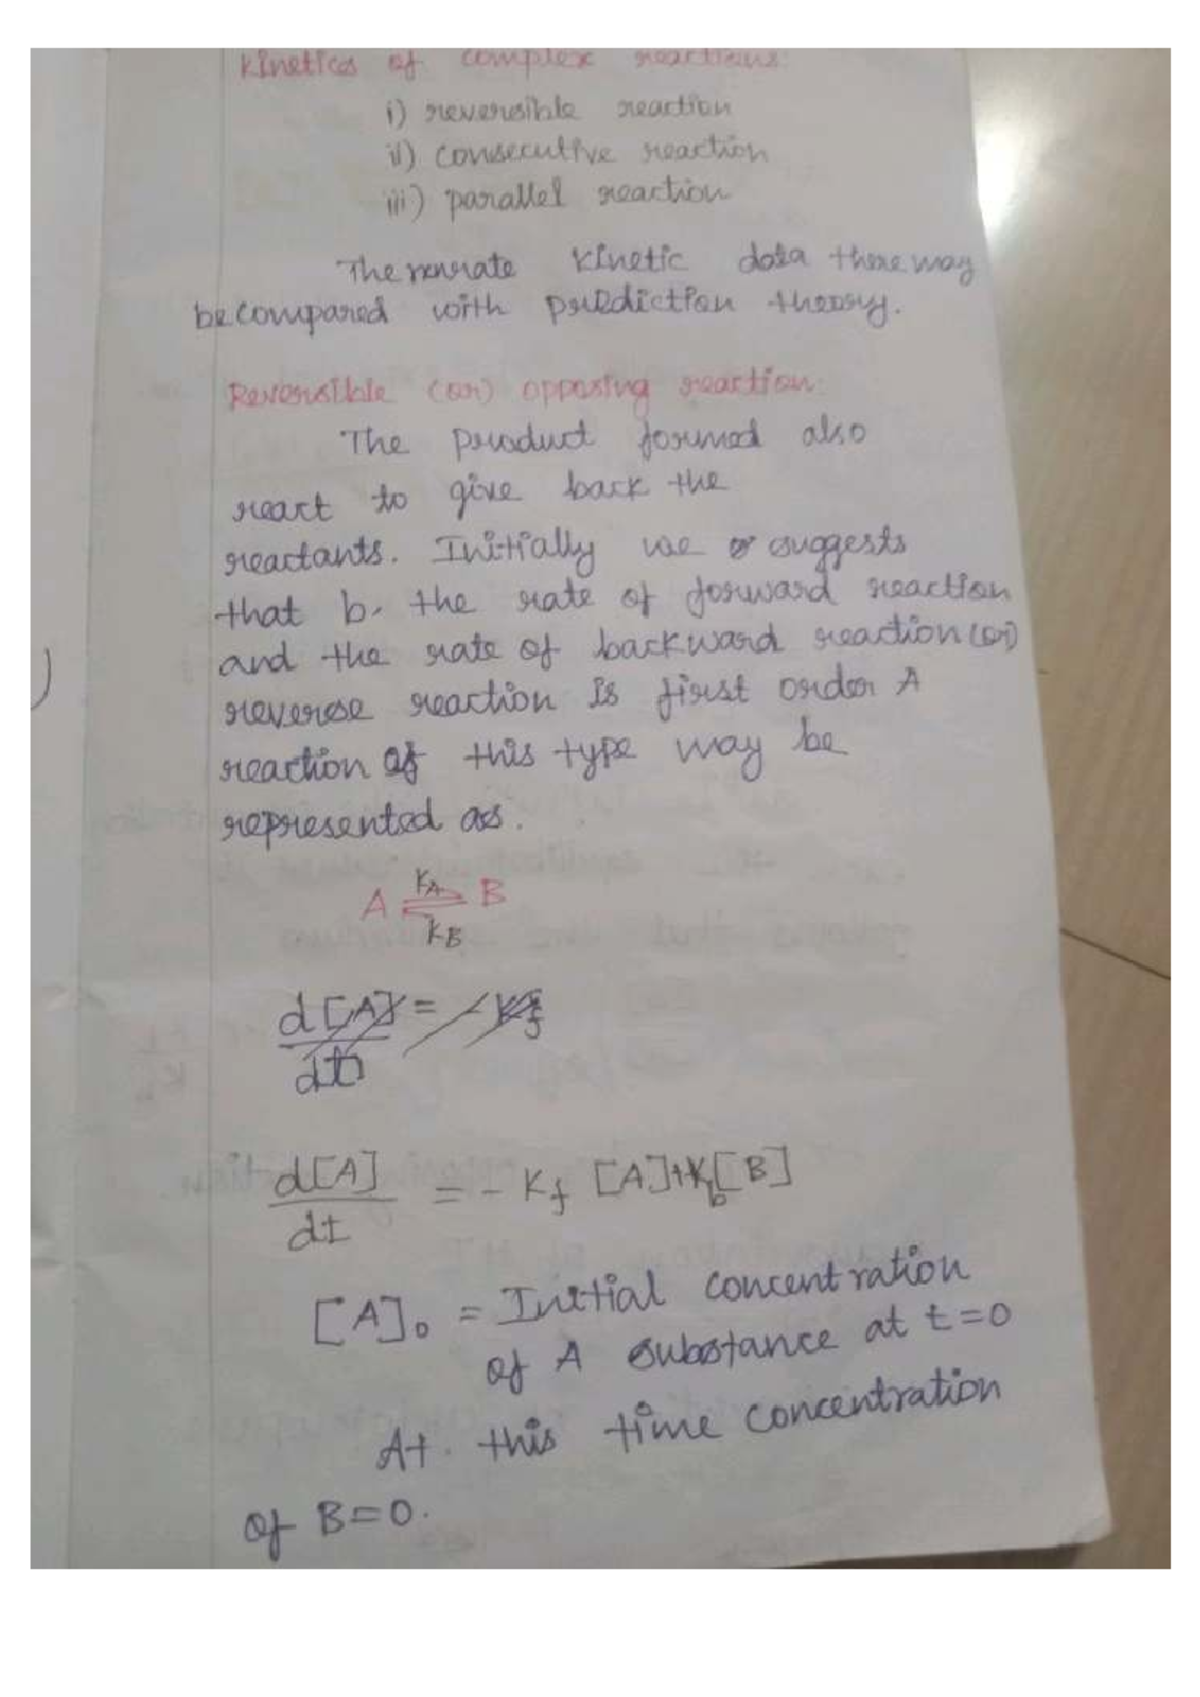 Kinetics of complex reactions:
i) reversible reaction
ii) consecutive reaction
iii) parallel reaction
The kinetic data there may
be compared with prediction theory.
Reversible (or) opposing reaction:
The product formed also
react to give back the
reactants. Initially we suggests
that b. the rate of forward reaction
and the rate of backward reaction (or)
reverse reaction is first order A
reaction of this type may be
represented as.
A ⇌ B
KA
KB
d[A] =
dt
d[A]/dt = - Kf [A]+Kb[B]
[A]0 = Initial concentration
of A substance at t=0
At. this time concentration
of B=0.